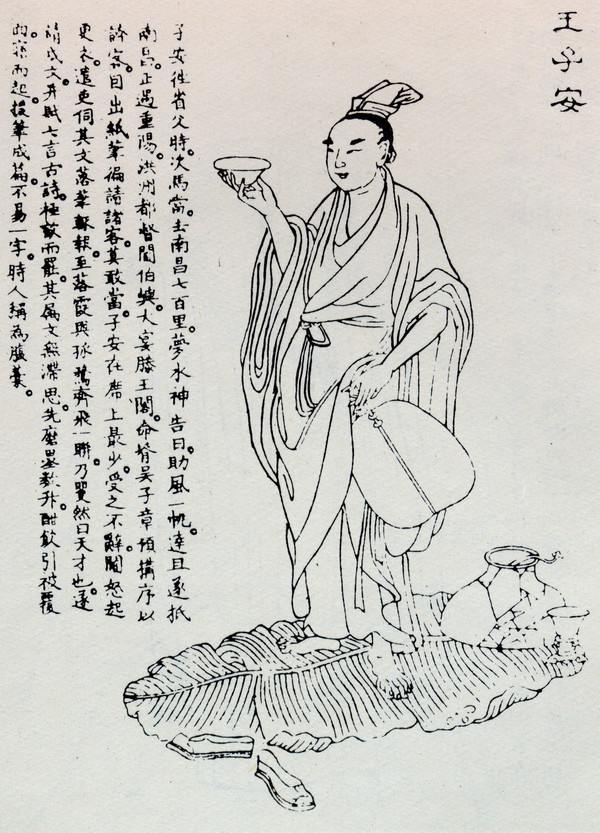 王子安
子安往省父時。次馬當。去南昌七百里。夢水神告曰。助風一帆。達旦遂抵
南昌。正遇重陽。洪州都督閻伯嶼。大宴滕王閣。命壻吳子章預搆序以
誇客。因出紙筆徧請諸客。莫敢當。子安在席上最少。受之不辭。閻怒起
更衣。遣吏伺其文。落筆輒報。至落霞與孤鶩齊飛一聯。乃矍然曰天才也。遂
請成文。并賦七言古詩。極歡而罷。其屬文無滯思。先磨墨數升。酣飲引被覆
面。寐而起。援筆成篇。不易一字。時人稱為腹藁。